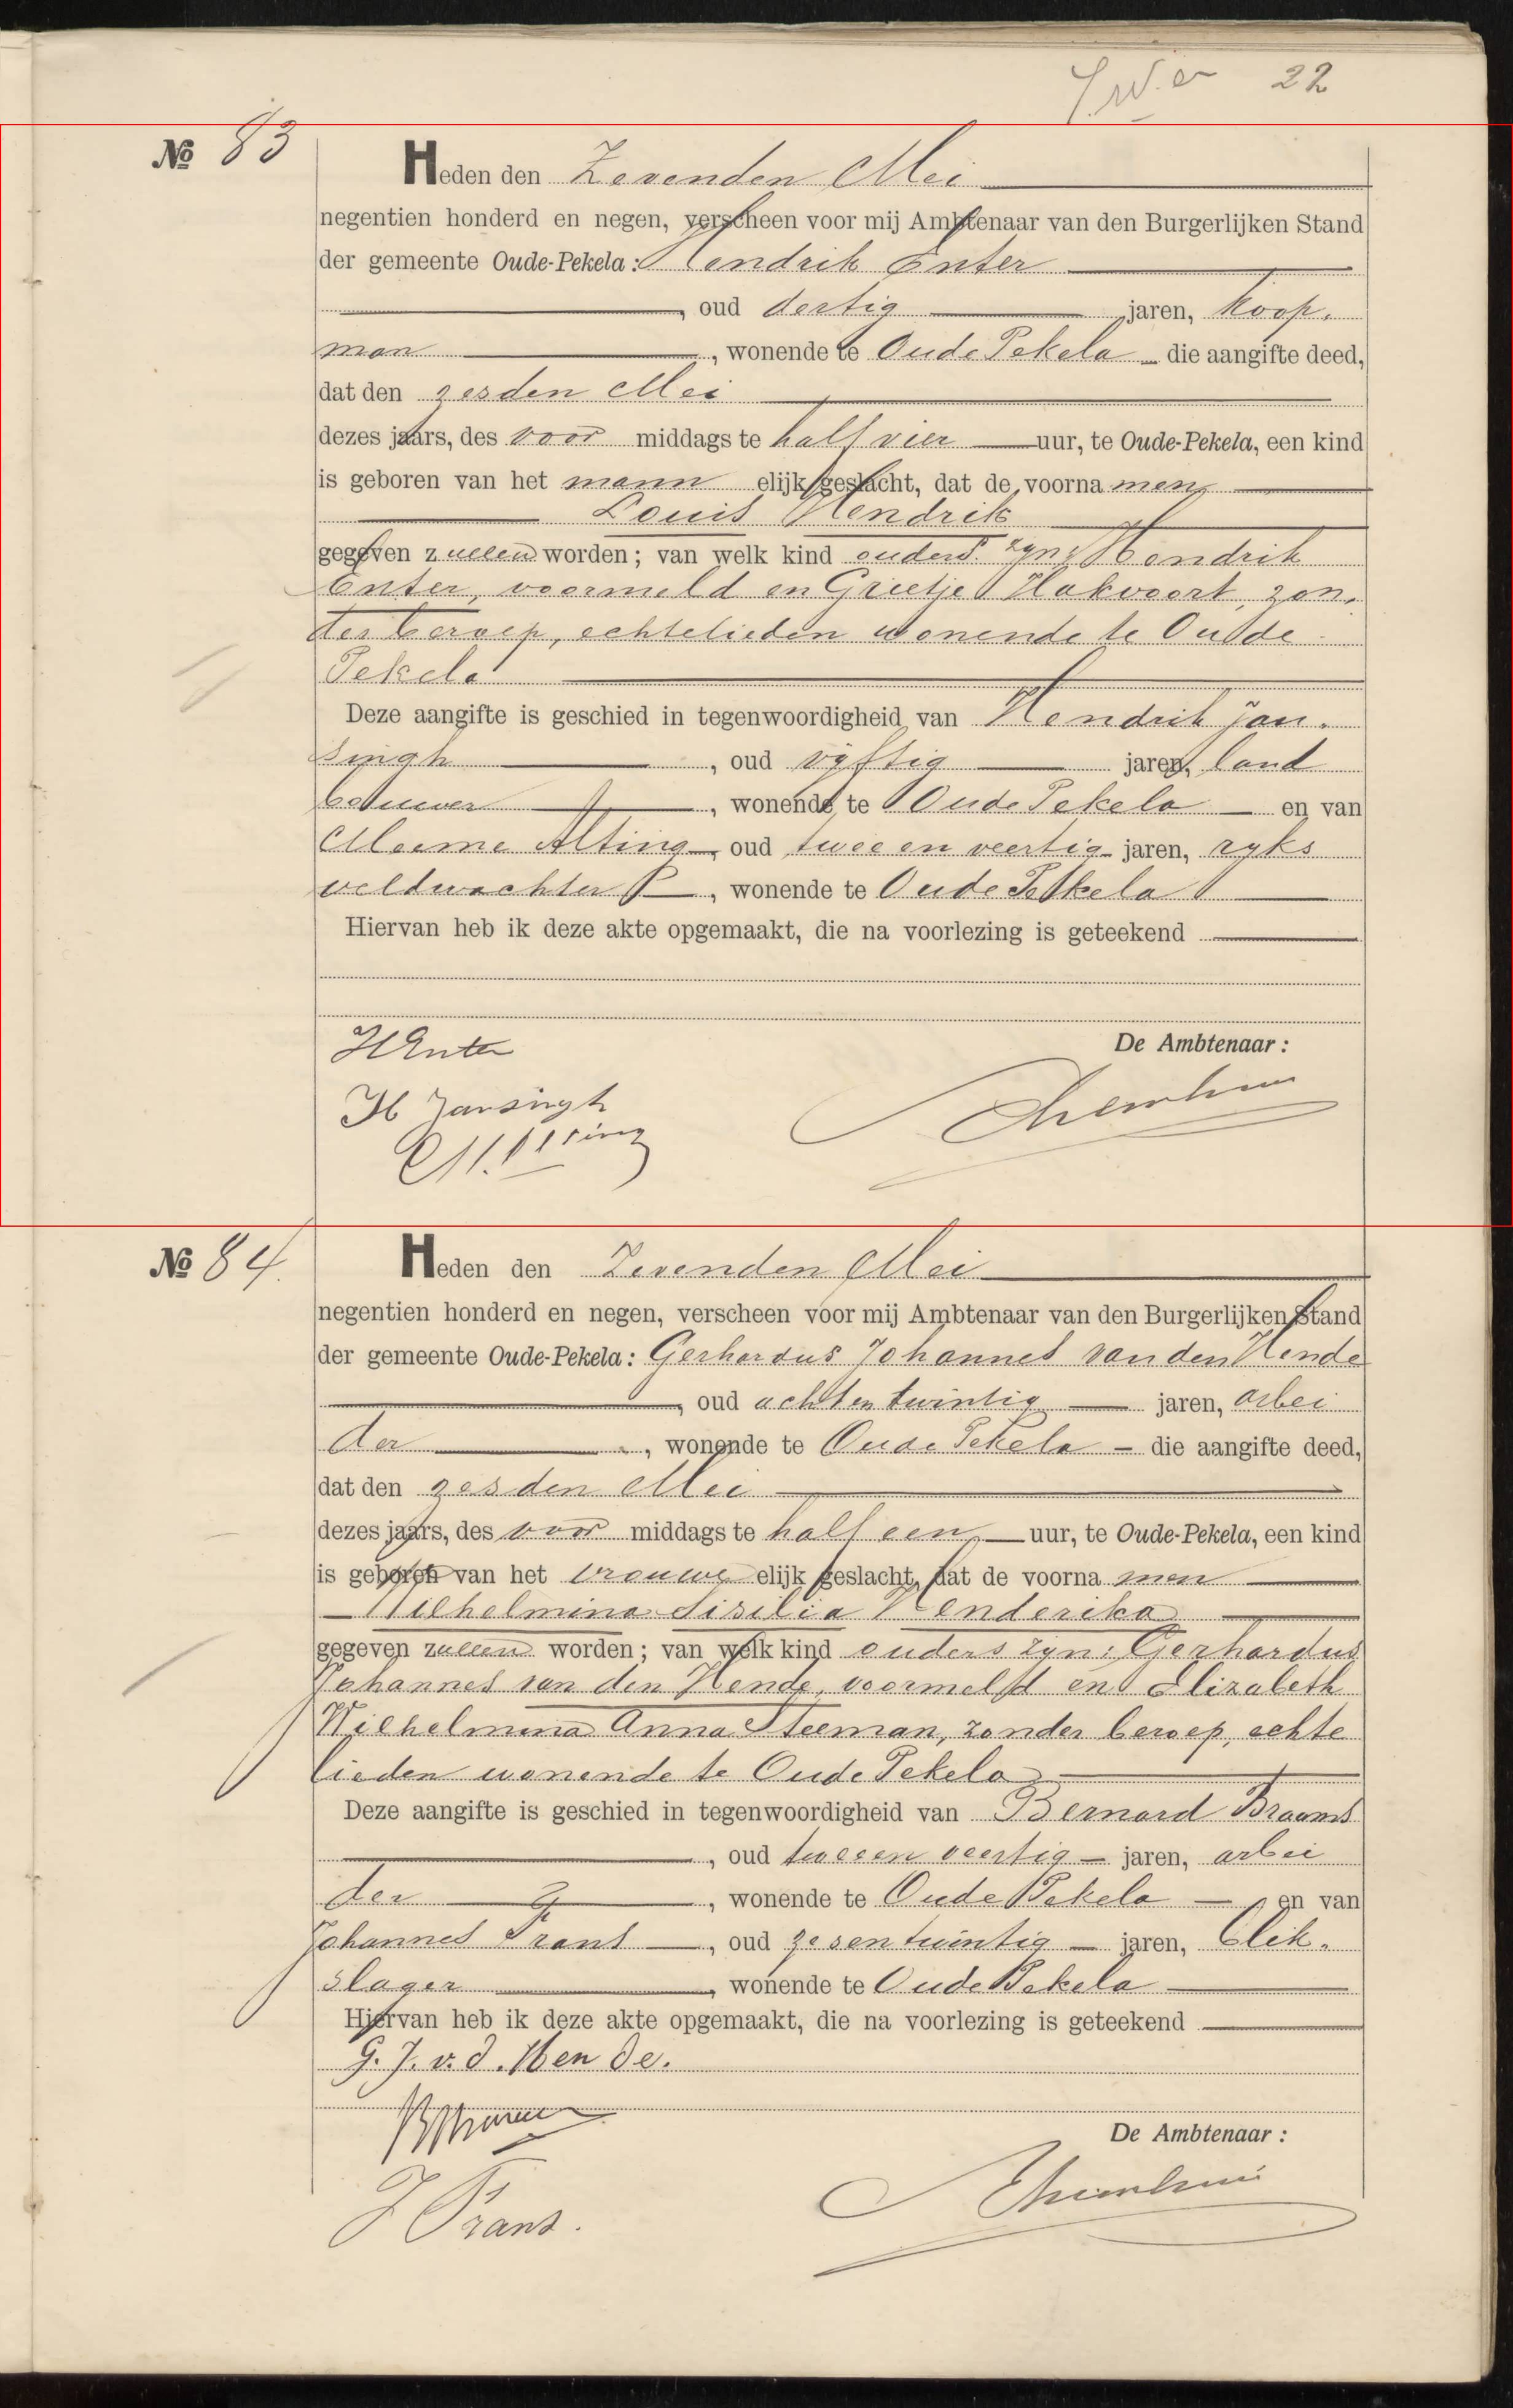 22
No 83
Heden den Zevenden Mei
negentien honderd en negen, verscheen voor mij Ambtenaar van den Burgerlijken Stand
der gemeente Oude-Pekela: Hendrik Enter
, oud dertig jaren, koop-
man, wonende te Oude Pekela die aangifte deed,
dat den zesden Mei
dezes jaars, des voor middags te half vier uur, te Oude-Pekela, een kind
is geboren van het mann elijk geslacht, dat de voorna men
Louis Hendrik
gegeven zullen worden; van welk kind ouders zyn: Hendrik
Enter, voormeld en Grietje Hakvoort, zon-
der beroep, echtelieden wonende te Oude
Pekela
Deze aangifte is geschied in tegenwoordigheid van Hendrik Jan-
singh, oud vyftig jaren, land
bouwer, wonende te Oude Pekela en van
Meeme Alting, oud twee en veertig jaren, ryks
veldwachter, wonende te Oude Pekela
Hiervan heb ik deze akte opgemaakt, die na voorlezing is geteekend
De Ambtenaar:
HEnter
H Jansingh
M. Alting
No 84.
Heden den Zevenden Mei
negentien honderd en negen, verscheen voor mij Ambtenaar van den Burgerlijken Stand
der gemeente Oude-Pekela: Gerhardus Johannes van den Hende
, oud achten twintig jaren, arbei
der, wonende te Oude Pekela – die aangifte deed,
dat den zesden Mei
dezes jaars, des voor middags te half een uur, te Oude-Pekela, een kind
is geboren van het vrouw elijk geslacht, dat de voorna men
Wilhelmina Sisilia Henderika
gegeven zullen worden; van welk kind ouders zyn: Gerhardus
Johannes van den Hende, voormeld en Elizabeth
Wilhelmina Anna Steeman, zonder beroep, echte
lieden wonende te Oude Pekela
Deze aangifte is geschied in tegenwoordigheid van Bernard Braams
, oud tweeen veertig jaren, arbei
der, wonende te Oude Pekela en van
Johannes Frans, oud zesen twintig jaren, blik-
slager, wonende te Oude Pekela
Hiervan heb ik deze akte opgemaakt, die na voorlezing is geteekend
G. J. v. d. Hende.
De Ambtenaar:
J Frans.